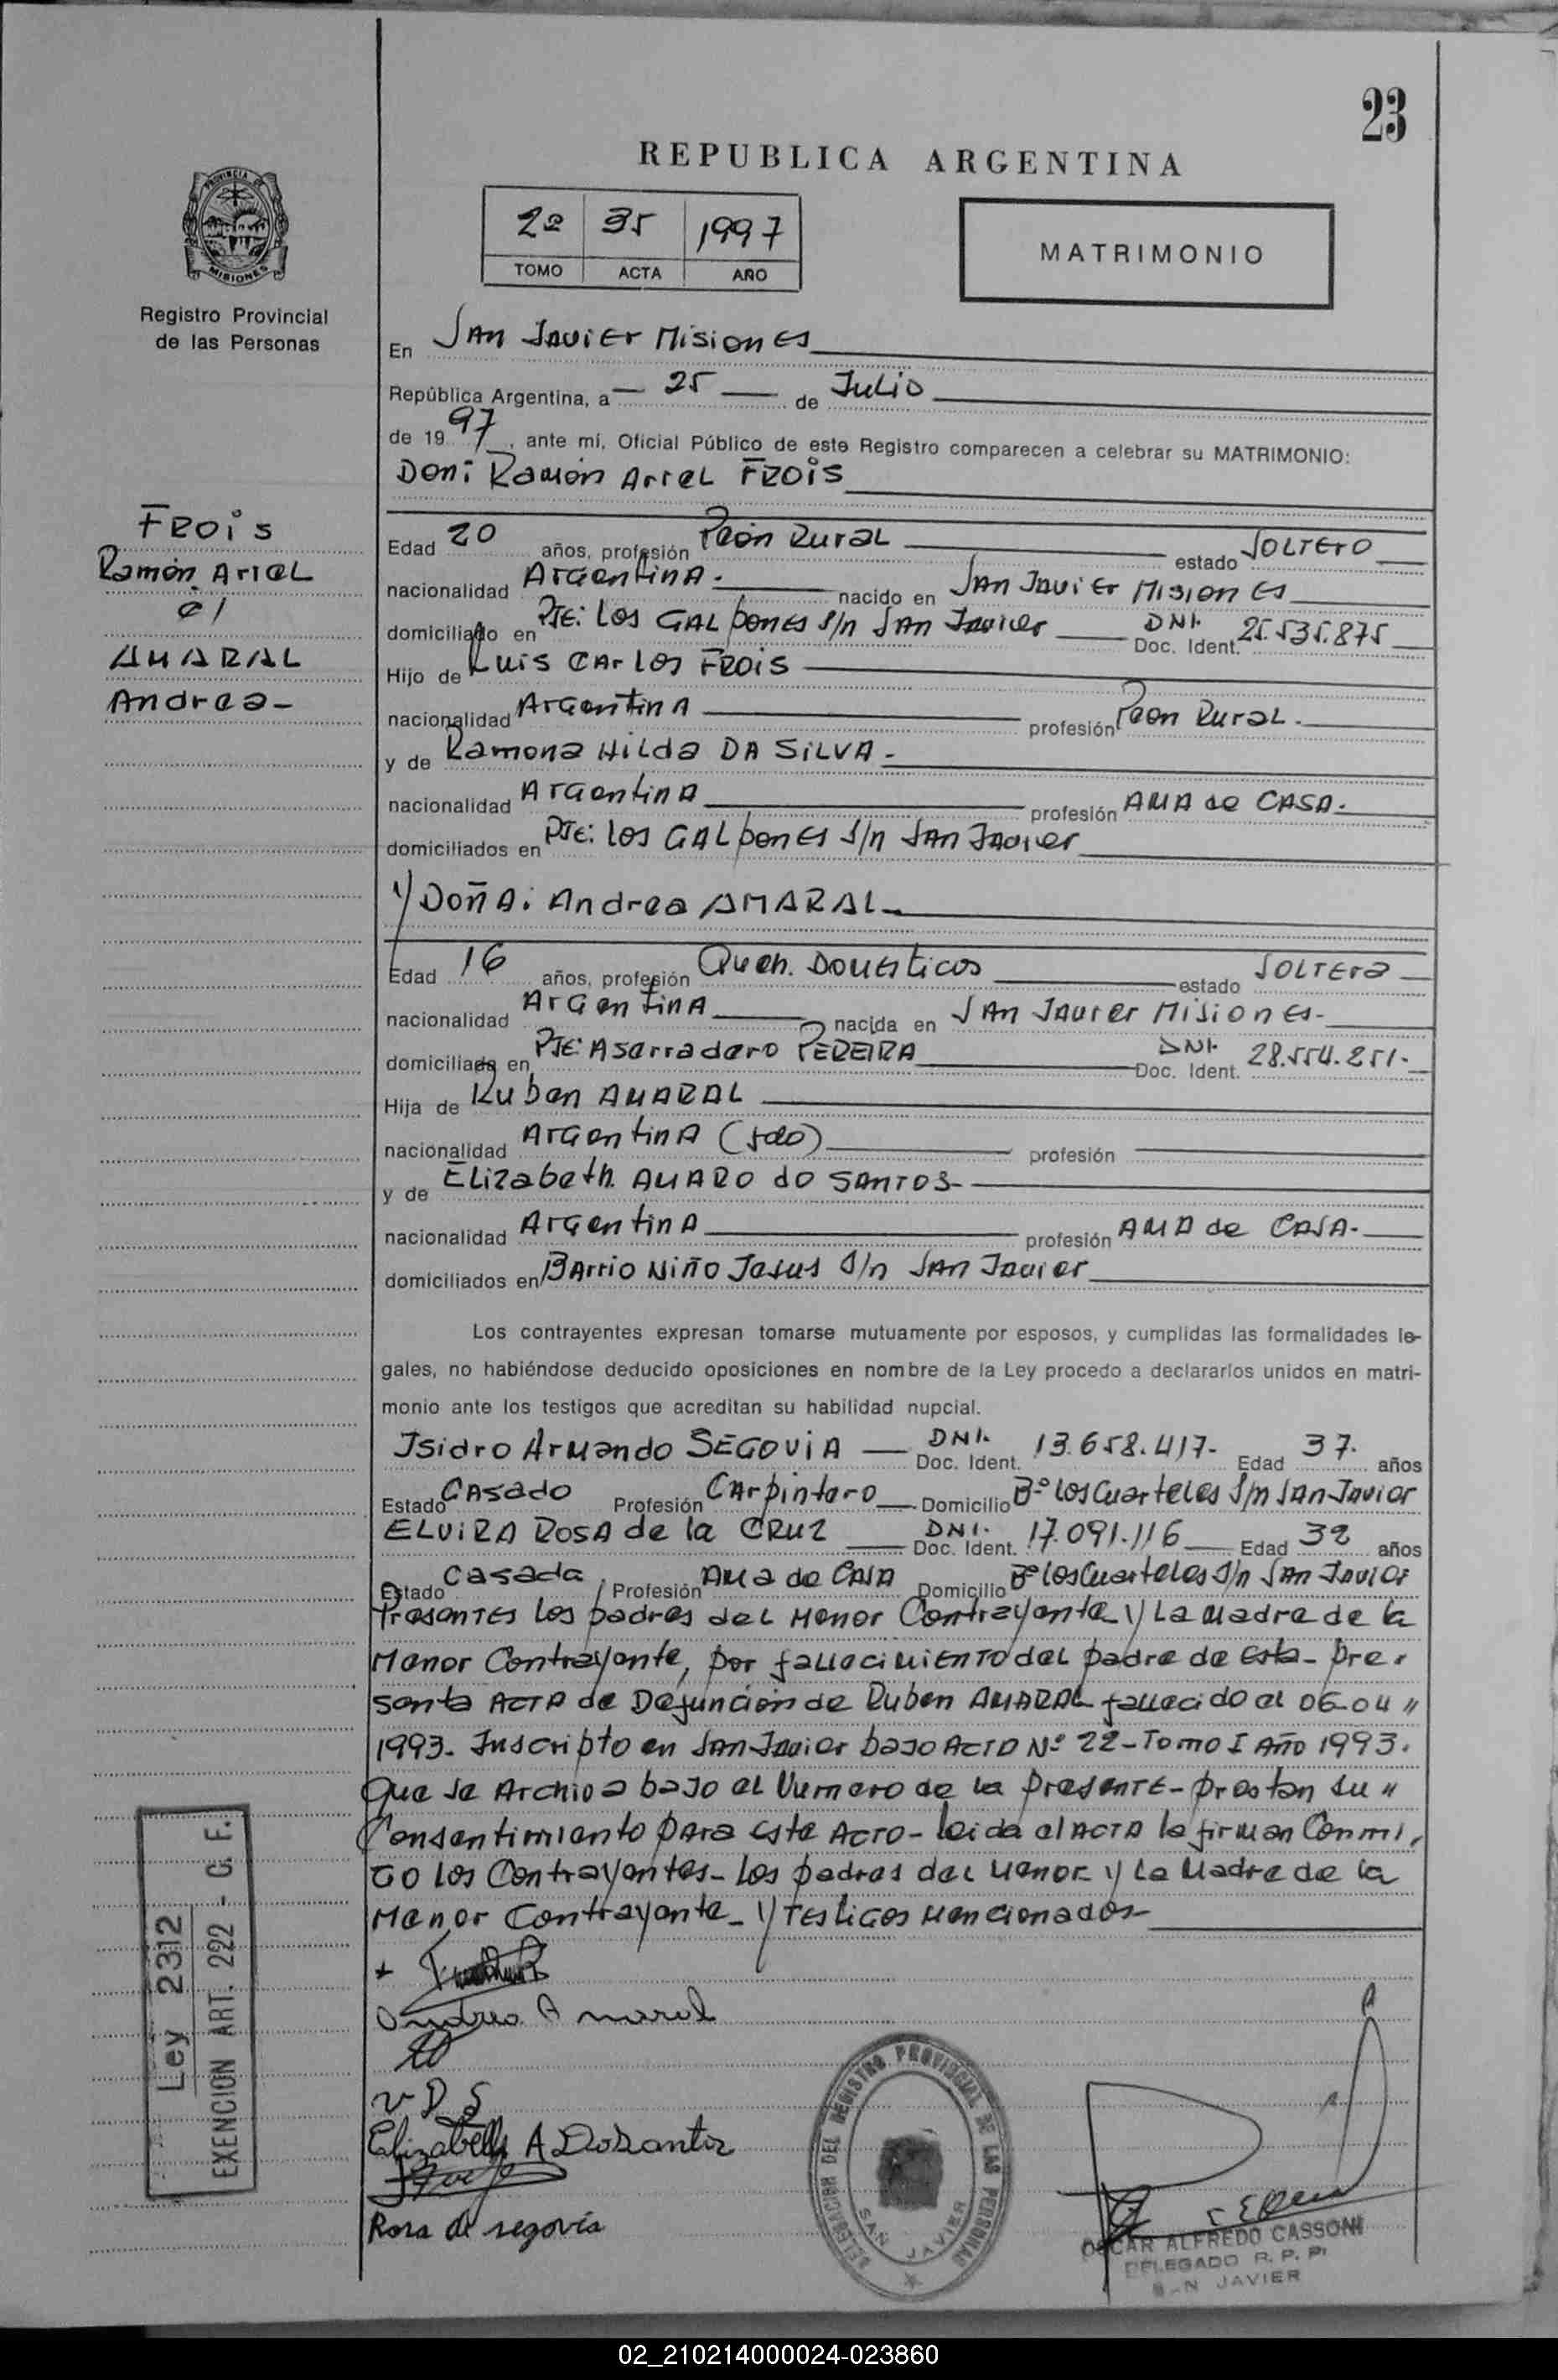 23
REPUBLICA ARGENTINA
2º 35 1997
TOMO ACTA AÑO
MATRIMONIO
PROVINCIA DE
MISIONES
Registro Provincial
de las Personas
En San Javier Misiones
República Argentina, a 25 de Julio
de 1997, ante mí, Oficial Público de este Registro comparecen a celebrar su MATRIMONIO:
Don: Ramón Ariel FROIS
FROIS
Ramón Ariel
c/
AMARAL
Andrea-
Edad 20 años, profesión Peón Rural estado SOLTERO
nacionalidad Argentina. nacido en San Javier Misiones
domiciliado en Pje: Los Galpones s/n San Javier DNI. Doc. Ident. 25.535.875
Hijo de Luis Carlos FROIS
nacionalidad Argentina profesión Peon Rural.
y de Ramona Hilda DA SILVA-
nacionalidad Argentina profesión AMA de CASA.
domiciliados en Pje: Los Galpones s/n San Javier
y Doña: Andrea AMARAL-
Edad 16 años, profesión Queh. Domesticos estado SOLTERA
nacionalidad Argentina nacida en San Javier Misiones-
domiciliada en Pje: Aserradero PEREIRA DNI. Doc. Ident. 28.554.251-
Hija de Ruben AMARAL
nacionalidad Argentina (fdo) profesión
y de Elizabeth AMARO do SANTOS-
nacionalidad Argentina profesión AMA de CASA-
domiciliados en Barrio Niño Jesus s/n San Javier
Los contrayentes expresan tomarse mutuamente por esposos, y cumplidas las formalidades le-
gales, no habiéndose deducido oposiciones en nombre de la Ley procedo a declararlos unidos en matri-
monio ante los testigos que acreditan su habilidad nupcial.
Isidro Armando SEGOVIA DNI. Doc. Ident. 13.658.417- Edad 37. años
Estado Casado Profesión Carpintero Domicilio Bº Los Cuarteles s/n San Javier
ELVIRA ROSA de la CRUZ DNI. Doc. Ident. 17.091.116 Edad 32 años
Estado Casada Profesión Ama de Casa Domicilio Bº Los Cuarteles s/n San Javier
Presentes los padres del Menor Contrayente y la Madre de la
Menor Contrayente, por fallecimiento del padre de esta- pre-
senta ACTA de Defunción de Ruben AMARAL fallecido el 06-04"
1993- Inscripto en San Javier bajo Acta Nº 22-Tomo I Año 1993.
Que se Archiva bajo el Numero de la presente- prestan su "
Consentimiento para este Acto- leida el Acta la firman Conmi,
go los Contrayentes- los padres del Menor y la Madre de la
Menor Contrayente- y Testigos Mencionados-
Andrea Amaral
Elizabeth A Dosantos
Rosa de segovia
Ley 2312
EXENCION ART. 222 - C. F.
DELEGACION DEL REGISTRO PROVINCIAL DE LAS PERSONAS
SAN JAVIER
OSCAR ALFREDO CASSONI
DELEGADO R. P. P.
SAN JAVIER
02_210214000024-023860